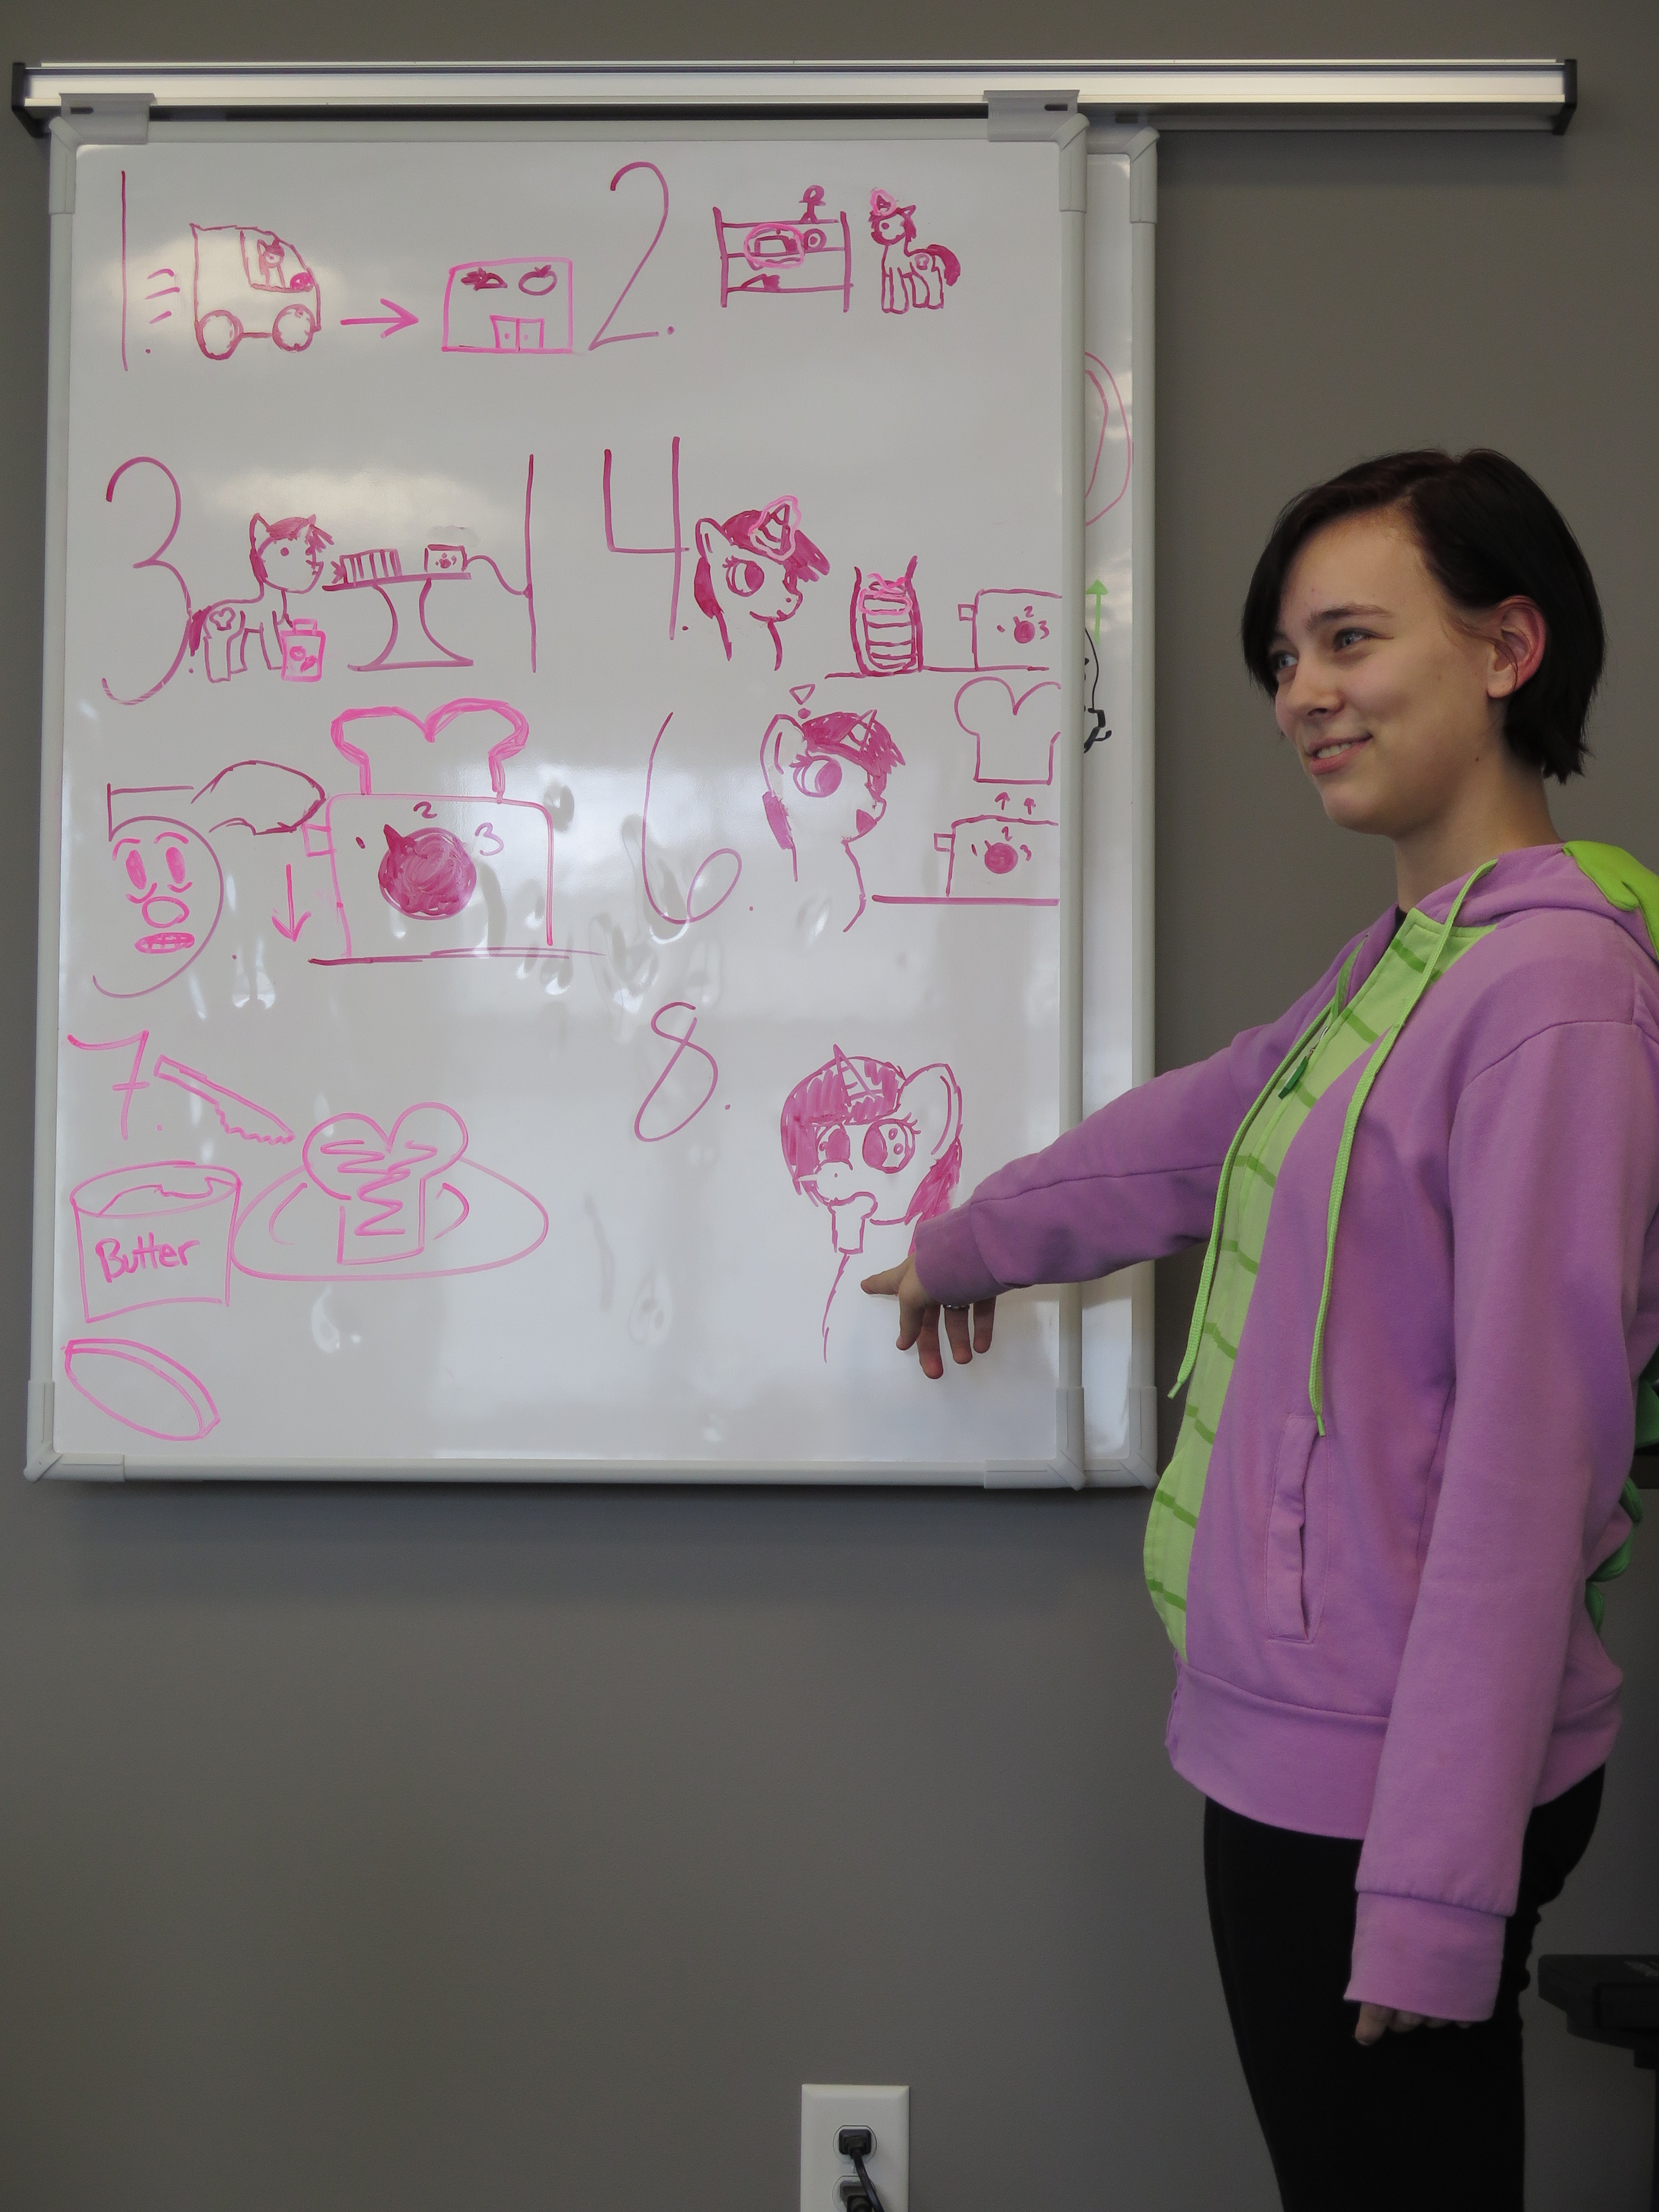 1.
2.
3.
4
1 2 3
5.
1 2 3
6.
1 2 3
7.
Butter
8.